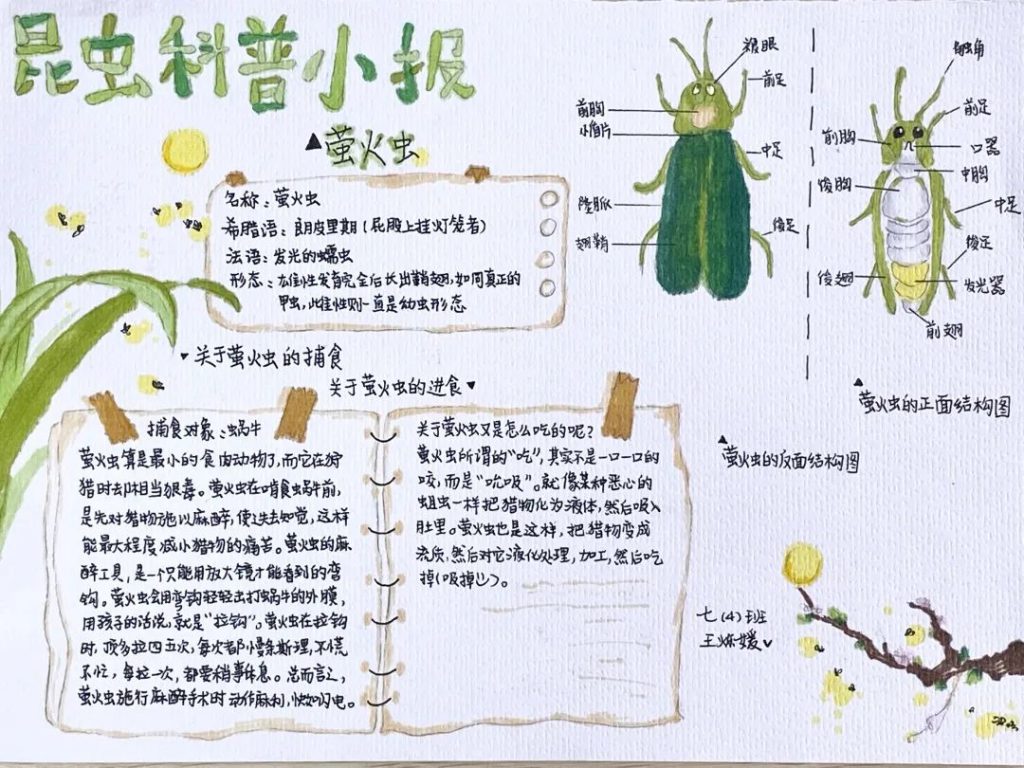 昆虫科普小报
▲萤火虫
名称：萤火虫
希腊语：朗皮里斯（屁股上挂灯笼者）
法语：发光的蠕虫
形态：在雄性发育完全后长出鞘翅,如同真正的
甲虫,此雌性则一直是幼虫形态
▾关于萤火虫的捕食
关于萤火虫的进食▾
捕食对象：蜗牛
萤火虫算是最小的食肉动物了,而它在狩
猎时却相当狠毒。萤火虫在啃食蜗牛前,
是先对猎物施以麻醉,使之失去知觉,这样
能最大程度减小猎物的痛苦。萤火虫的麻
醉工具,是一个只能用放大镜才能看到的弯
钩。萤火虫会用弯钩轻轻击打蜗牛的外膜,
用孩子的话说,就是“拉钩”。萤火虫在拉钩
时,顶多拉四五次,每次都慢条斯理,不慌
不忙,每拉一次,都要稍事休息。总而言之,
萤火虫施行麻醉手术时动作麻利,快如闪电。
关于萤火虫又是怎么吃的呢？
萤火虫所谓的“吃”,其实不是一口一口的
咬,而是“吮吸”。就像某种恶心的
蛆虫一样把猎物化为液体,然后吸入
肚里。萤火虫也是这样,把猎物变成
流质,然后对它液化处理,加工,然后吃
掉（吸掉）。
复眼
前足
前胸
小盾片
中足
翅鞘
后足
▲
萤火虫的反面结构图
触角
前足
前胸
口器
中胸
后胸
中足
后足
后翅
发光器
前翅
▲
萤火虫的正面结构图
七（4）班
王